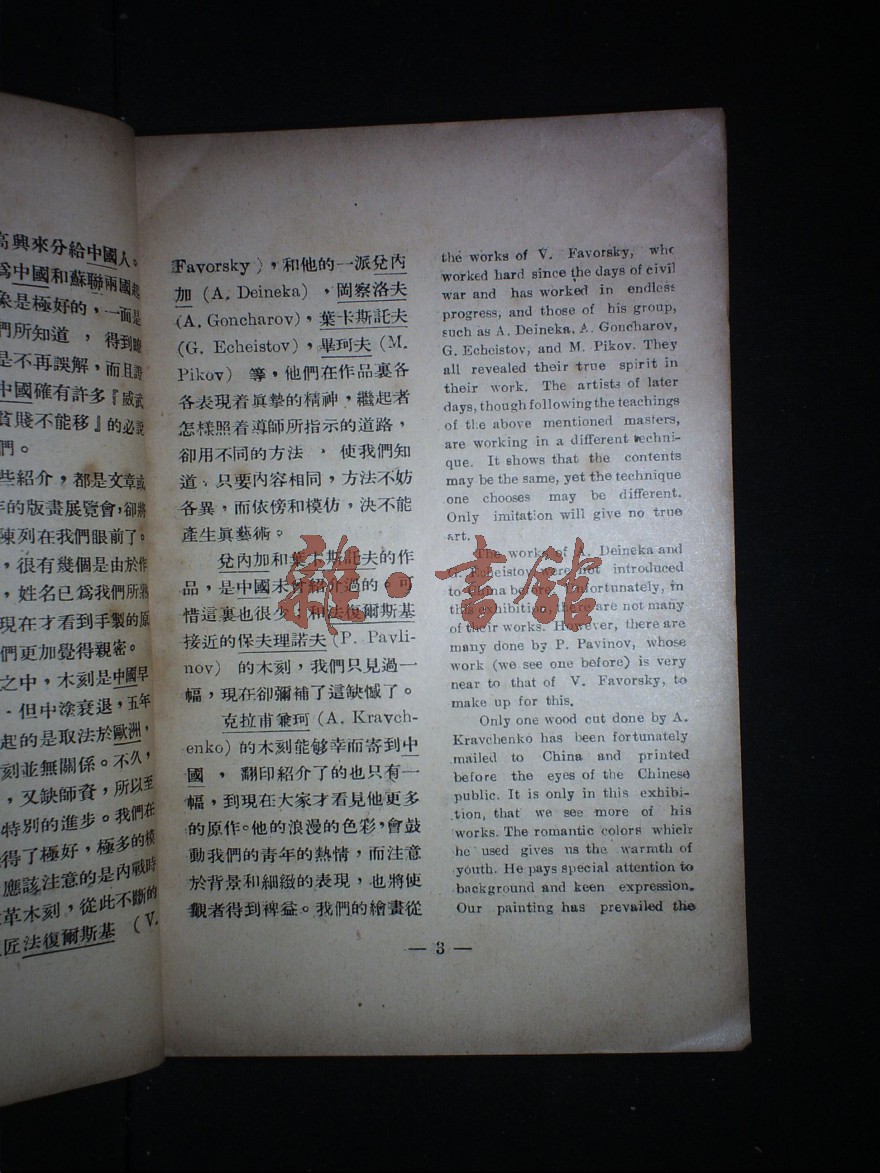 高興來分給中國人。
為中國和蘇聯兩國
象是極好的，一面是
們所知道，得到
是不再誤解，而且
中國確有許多『威武
貧賤不能移』的必說
們。
些紹介，都是文章或
年的版畫展覽會，卻將
陳列在我們眼前了。
，很有幾個是由於作
，姓名已爲我們所熟
現在才看到手製的原
們更加覺得親密。
之中，木刻是中國早
．但中塗衰退，五年
起的是取法於歐洲，
刻並無關係。不久，
，又缺師資，所以至
特別的進步。我們在
得了極好，極多的模
應該注意的是內戰時
革木刻，從此不斷的
匠法復爾斯基（V.
Favorsky），和他的一派兌內
加（A. Deineka），岡察洛夫
（A. Goncharov），葉卡斯託夫
（G. Echeistov），畢珂夫（M.
Pikov）等，他們在作品裏各
各表現着眞摯的精神，繼起者
怎樣照着導師所指示的道路，
卻用不同的方法，使我們知
道，只要內容相同，方法不妨
各異，而依傍和模仿，決不能
產生眞藝術。
兌內加和葉卡斯託夫的作
品，是中國未曾紹介過的。可
惜這裏也很少；和法復爾斯基
接近的保夫理諾夫（P. Pavli-
nov）的木刻，我們只見過一
幅，現在卻彌補了這缺憾了。
克拉甫兼珂（A. Kravch-
enko）的木刻能够幸而寄到中
國，翻印紹介了的也只有一
幅，到現在大家才看見他更多
的原作。他的浪漫的色彩，會鼓
動我們的青年的熱情，而注意
於背景和細緻的表現，也將使
觀者得到裨益。我們的繪畫從
the works of V. Favorsky, who
worked hard since the days of civil
war and has worked in endless
progress, and those of his group,
such as A. Deineka, A. Goncharov,
G. Echeistov, and M. Pikov. They
all revealed their true spirit in
their work. The artists of later
days, though following the teachings
of the above mentioned masters,
are working in a different techni-
que. It shows that the contents
may be the same, yet the technique
one chooses may be different.
Only imitation will give no true
art.
The works of A. Deineka and
G. Echeistov were not introduced
to China before. Unfortunately, in
this exhibition, there are not many
of their works. However, there are
many done by P. Pavinov, whose
work (we see one before) is very
near to that of V. Favorsky, to
make up for this.
Only one wood cut done by A.
Kravchenko has been fortunately
mailed to China and printed
before the eyes of the Chinese
public. It is only in this exhibi-
tion, that we see more of his
works. The romantic colors which
he used gives us the warmth of
youth. He pays special attention to
background and keen expression.
Our painting has prevailed the
— 3 —
雜·書館